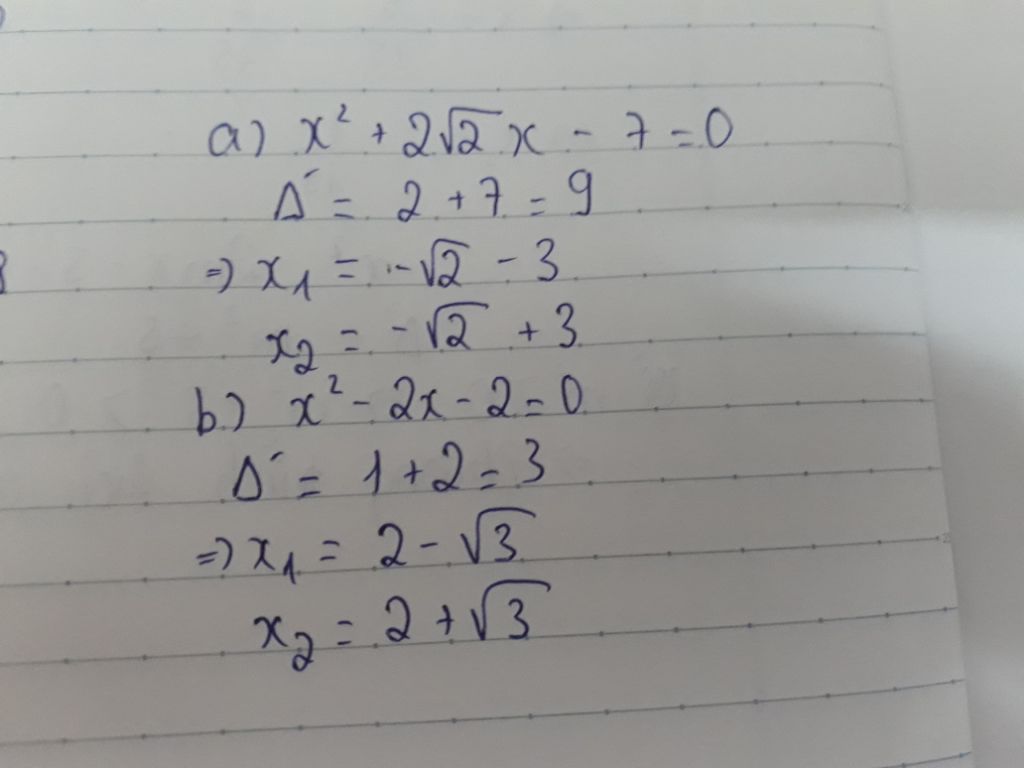 a) x² + 2√2 x - 7 = 0
Δ' = 2 + 7 = 9
=) x₁ = -√2 - 3
x₂ = -√2 + 3
b.) x² - 2x - 2 = 0
Δ' = 1 + 2 = 3
=) x₁ = 2 - √3
x₂ = 2 + √3